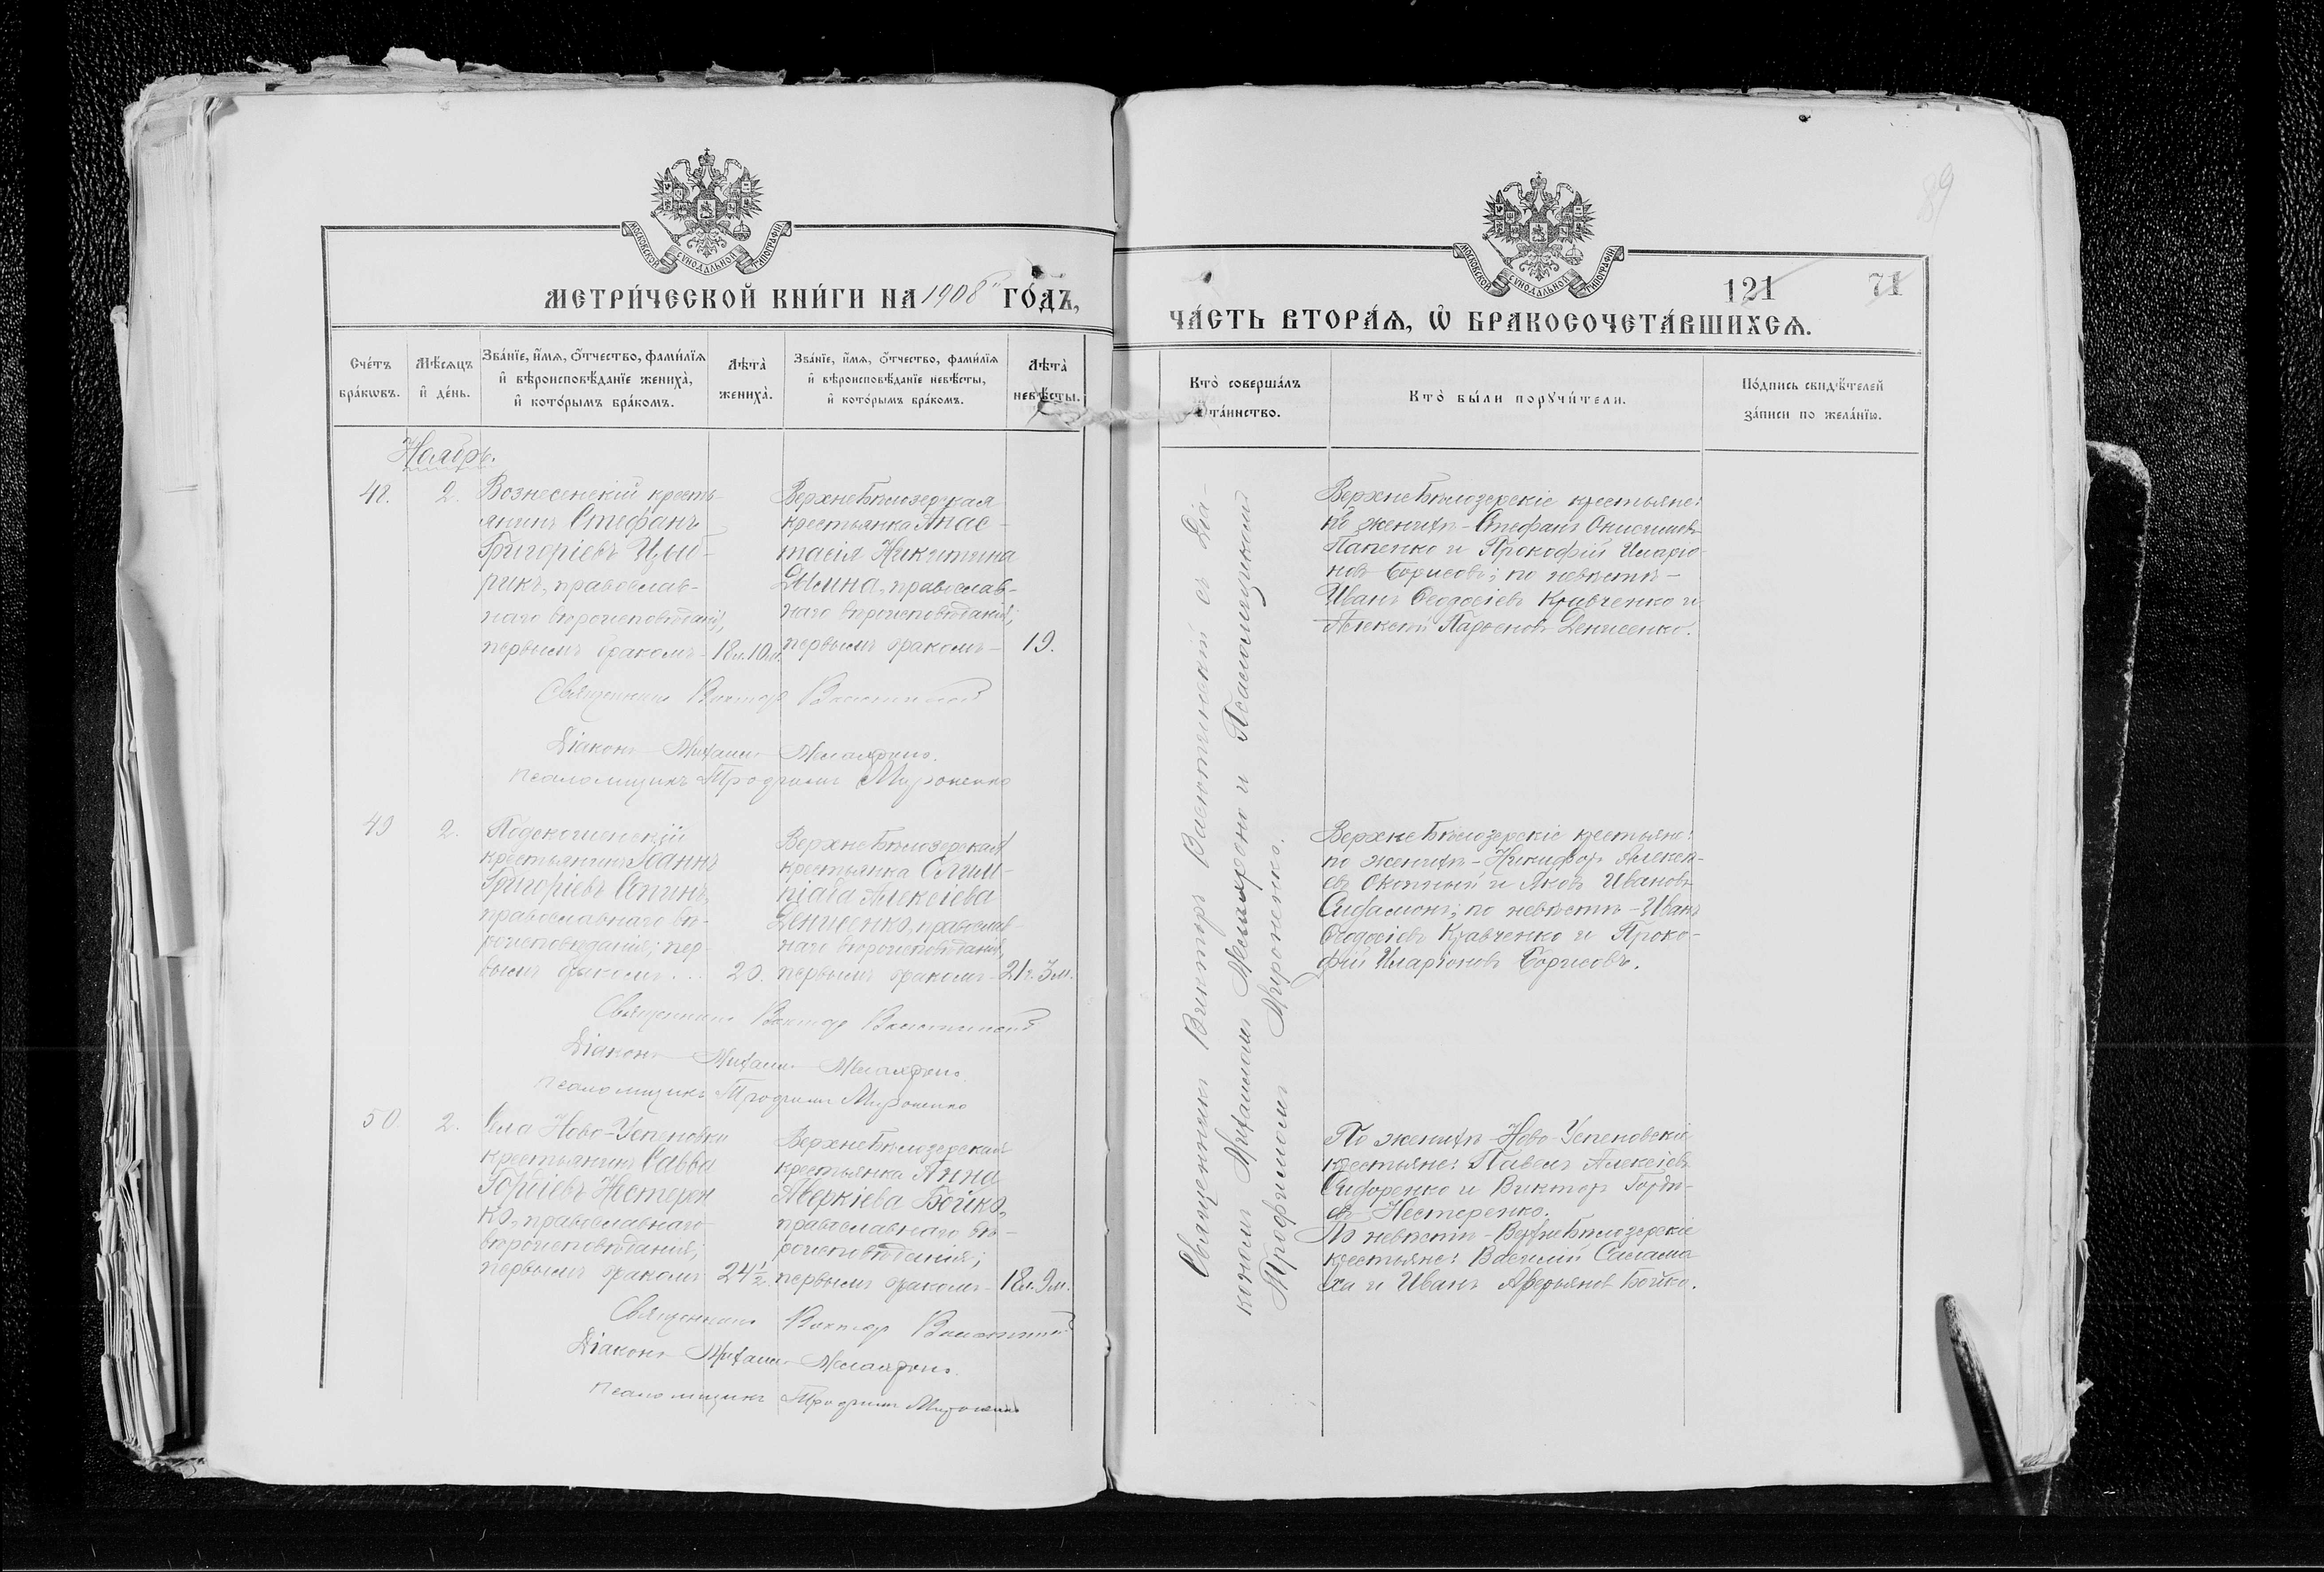 МОСКОВСКОЙ СѴНОДАЛЬНОЙ ТИПОГРАФІИ
МЕТРИ́ЧЕСКОЙ КНИ́ГИ НА 1908 ГО́ДЪ,
Сче́тъ бра́кωвъ.
Мѣ́сяцъ и҆ де́нь.
Зва́нїе, и҆́мѧ, ѻ҆́тчество, фами́лїѧ
и҆ вѣроисповѣ́данїе жениха̀,
и҆ кото́рымъ бра́комъ.
Лѣта̀ жениха̀.
Зва́нїе, и҆́мѧ, ѻ҆́тчество, фами́лїѧ
и҆ вѣроисповѣ́данїе невѣ́сты,
и҆ кото́рымъ бра́комъ.
Лѣта̀ невѣ́сты.
Ноябрь.
48.
2.
Вознесенскій кресть-
янинъ Стефанъ
Григоріевъ Цы
рикъ, православ-
наго вѣроисповѣданія,
первымъ бракомъ
18л.10м.
ВерхнеБѣлозерская
крестьянка Анас-
тасія Никитина
Дымина, православ-
наго вѣроисповѣданія;
первымъ бракомъ
19.
Священникъ Викторъ
Діаконъ Михаилъ
Псаломщикъ Трофимъ Мироненко
49
2.
крестьянинъ Іоаннъ
Григоріевъ
православнаго вѣ-
роисповѣданія; пер-
вымъ бракомъ...
20.
ВерхнеБѣлозерская
крестьянка Олим-
піада Алексіева
Денисенко, православ-
наго вѣроисповѣданія,
первымъ бракомъ
21г.3м.
Священникъ Викторъ
Діаконъ Михаилъ
Псаломщикъ Трофимъ Мироненко
50
2.
Села Ново-Успеновки
крестьянинъ Савва
Нестерен
ко, православнаго
вѣроисповѣданія;
первымъ бракомъ
24 1/2.
ВерхнеБѣлозерская
крестьянка Анна
Аверкіева Бойко,
православнаго вѣ-
роисповѣданія;
первымъ бракомъ
18л.9м.
Священникъ Викторъ
Діаконъ Михаилъ
Псаломщикъ Трофимъ Мироненко
89
МОСКОВСКОЙ СѴНОДАЛЬНОЙ ТИПОГРАФІИ
121
71
ЧА́СТЬ ВТОРА́Ѧ, Ѽ БРАКОСОЧЕТА́ВШИХСѦ.
Кто̀ соверша́лъ та́инство.
Кто̀ бы́ли порꙋчи́тели.
По́дпись свидѣ́телей
за́писи по жела́нїю.
Священникъ Викторъ съ Діа
кономъ Михаиломъ и Псаломщикомъ
Трофимомъ Мироненко.
ВерхнеБѣлозерскіе крестьяне:
по женихѣ - Стефанъ Онисимовъ
Папенко и Прокофій Иларіо-
новъ Борисовъ; по невѣстѣ -
Иванъ Ѳеодосіевъ Кравченко и
Алексѣй Парѳеновъ Денисенко.
ВерхнеБѣлозерскіе крестьяне:
по женихѣ - Никифоръ Алексѣ-
евъ Окопный и Яковъ Ивановъ
по невѣстѣ - Иванъ
Ѳеодосіевъ Кравченко и Проко-
фій Иларіоновъ Борисовъ.
По женихѣ - Ново-Успеновскіе
крестьяне: Павелъ Алексіевъ
Сидоренко и Викторъ Гордѣ-
евъ Нестеренко.
По невѣстѣ - ВерхнеБѣлозерскіе
крестьяне: Василій Салама
ха и Иванъ Аверьяновъ Бойко.